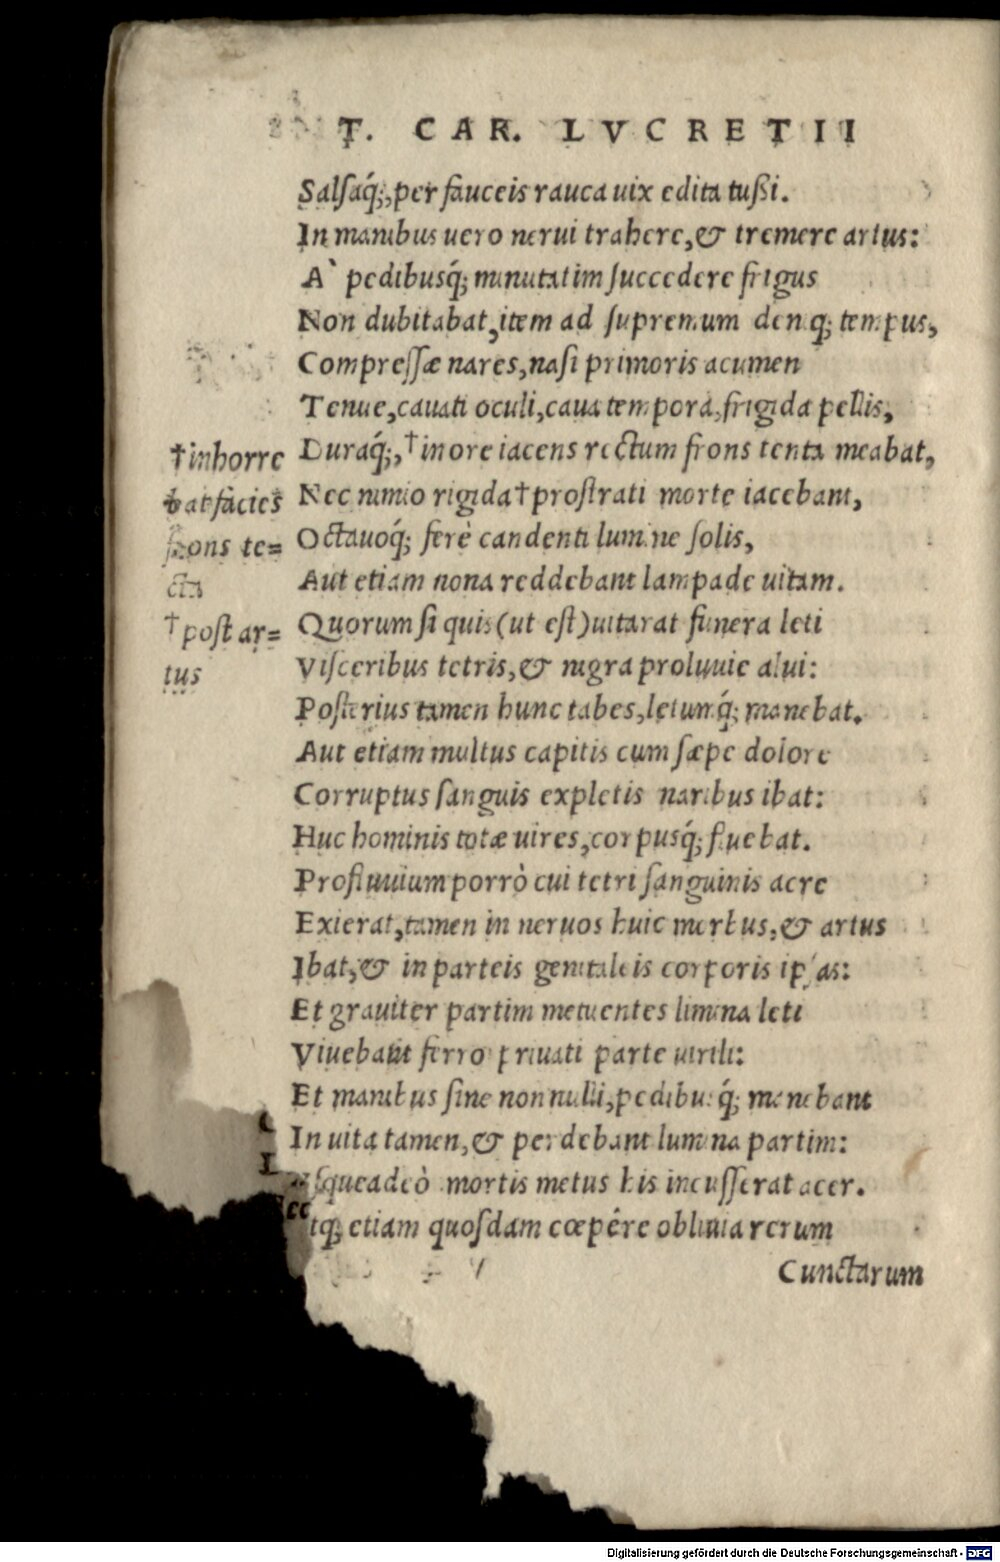 T. CAR. LVCRETII
Salsaq́;, per fauceis rauca uix edita tußi.
In manibus uero nerui trahere, & tremere artus:
A` pedibusq́; minutatim succedere frigus
Non dubitabat, item ad supremum deniq; tempus,
Compressæ nares, nasi primoris acumen
Tenue, cauati oculi, caua tempora, frigida pellis,
Duraq́;, † in ore iacens rectum frons tenta meabat,
Nec nimio rigida † prostrati morte iacebant,
Octauoq́; ferè candenti lumine solis,
Aut etiam nona reddebant lampade uitam.
Quorum si quis (ut est) uitarat funera leti
Visceribus tetris, & nigra proluuie alui:
Posterius tamen hunc tabes, letumq́; manebat.
Aut etiam multus capitis cum sæpe dolore
Corruptus sanguis expletis naribus ibat:
Huc hominis totæ uires, corpusq́; fluebat.
Profluuium porrò cui tetri sanguinis acre
Exierat, tamen in neruos huic morbus, & artus
Ibat, & in parteis genitaleis corporis ipsas:
Et grauiter partim metuentes limina leti
Viuebant ferro priuati parte uirili:
Et manibus sine nonnulli, pedibusq́; manebant
In uita tamen, & perdebant lumina partim:
usqueadeò mortis metus his incusserat acer.
tq; etiam quosdam cœpêre obliuia rerum
Cunctarum
† inhorre
bat facies
frons te=
cta
† post ar=
tus
Digitalisierung gefördert durch die Deutsche Forschungsgemeinschaft - DFG